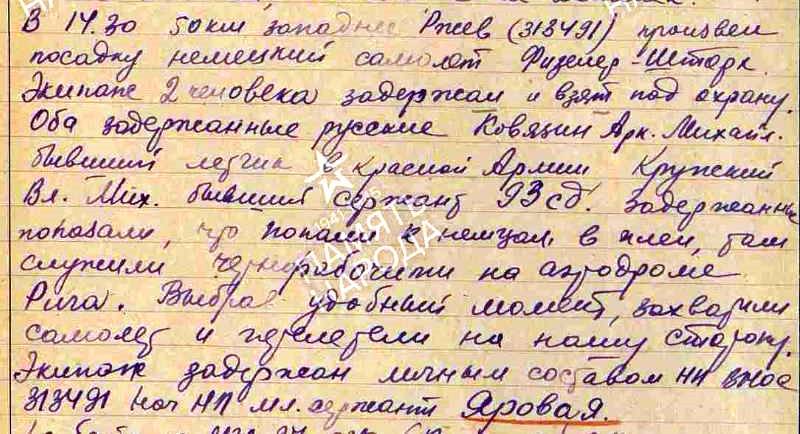 В 14.30 50 км западнее Ржев (313491) произвел
посадку немецкий самолет Физелер-Шторх.
Экипаж 2 человека задержан и взят под охрану.
Оба задержанные русские Ковязин Арк. Михайл.
бывший летчик в Красной Армии Кружский
Вл. Мих. бывший сержант 93 сд. задержанные
показали, что попали к немцам в плен, там
служили чернорабочими на аэродроме
Рига. Выбрав удобный момент, захватили
самолет и перелетели на нашу сторону.
Экипаж задержан личным составом НП ВНОС
313491 нач НП мл. сержант Яровая.
ПАМЯТЬ
НАРОДА